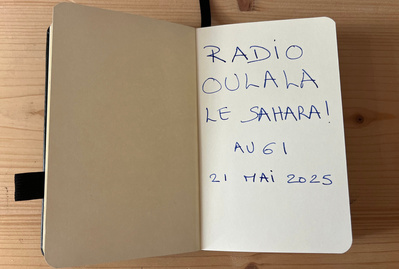 RADIO
OULALA
LE SAHARA!
AU 61
21 MAI 2025